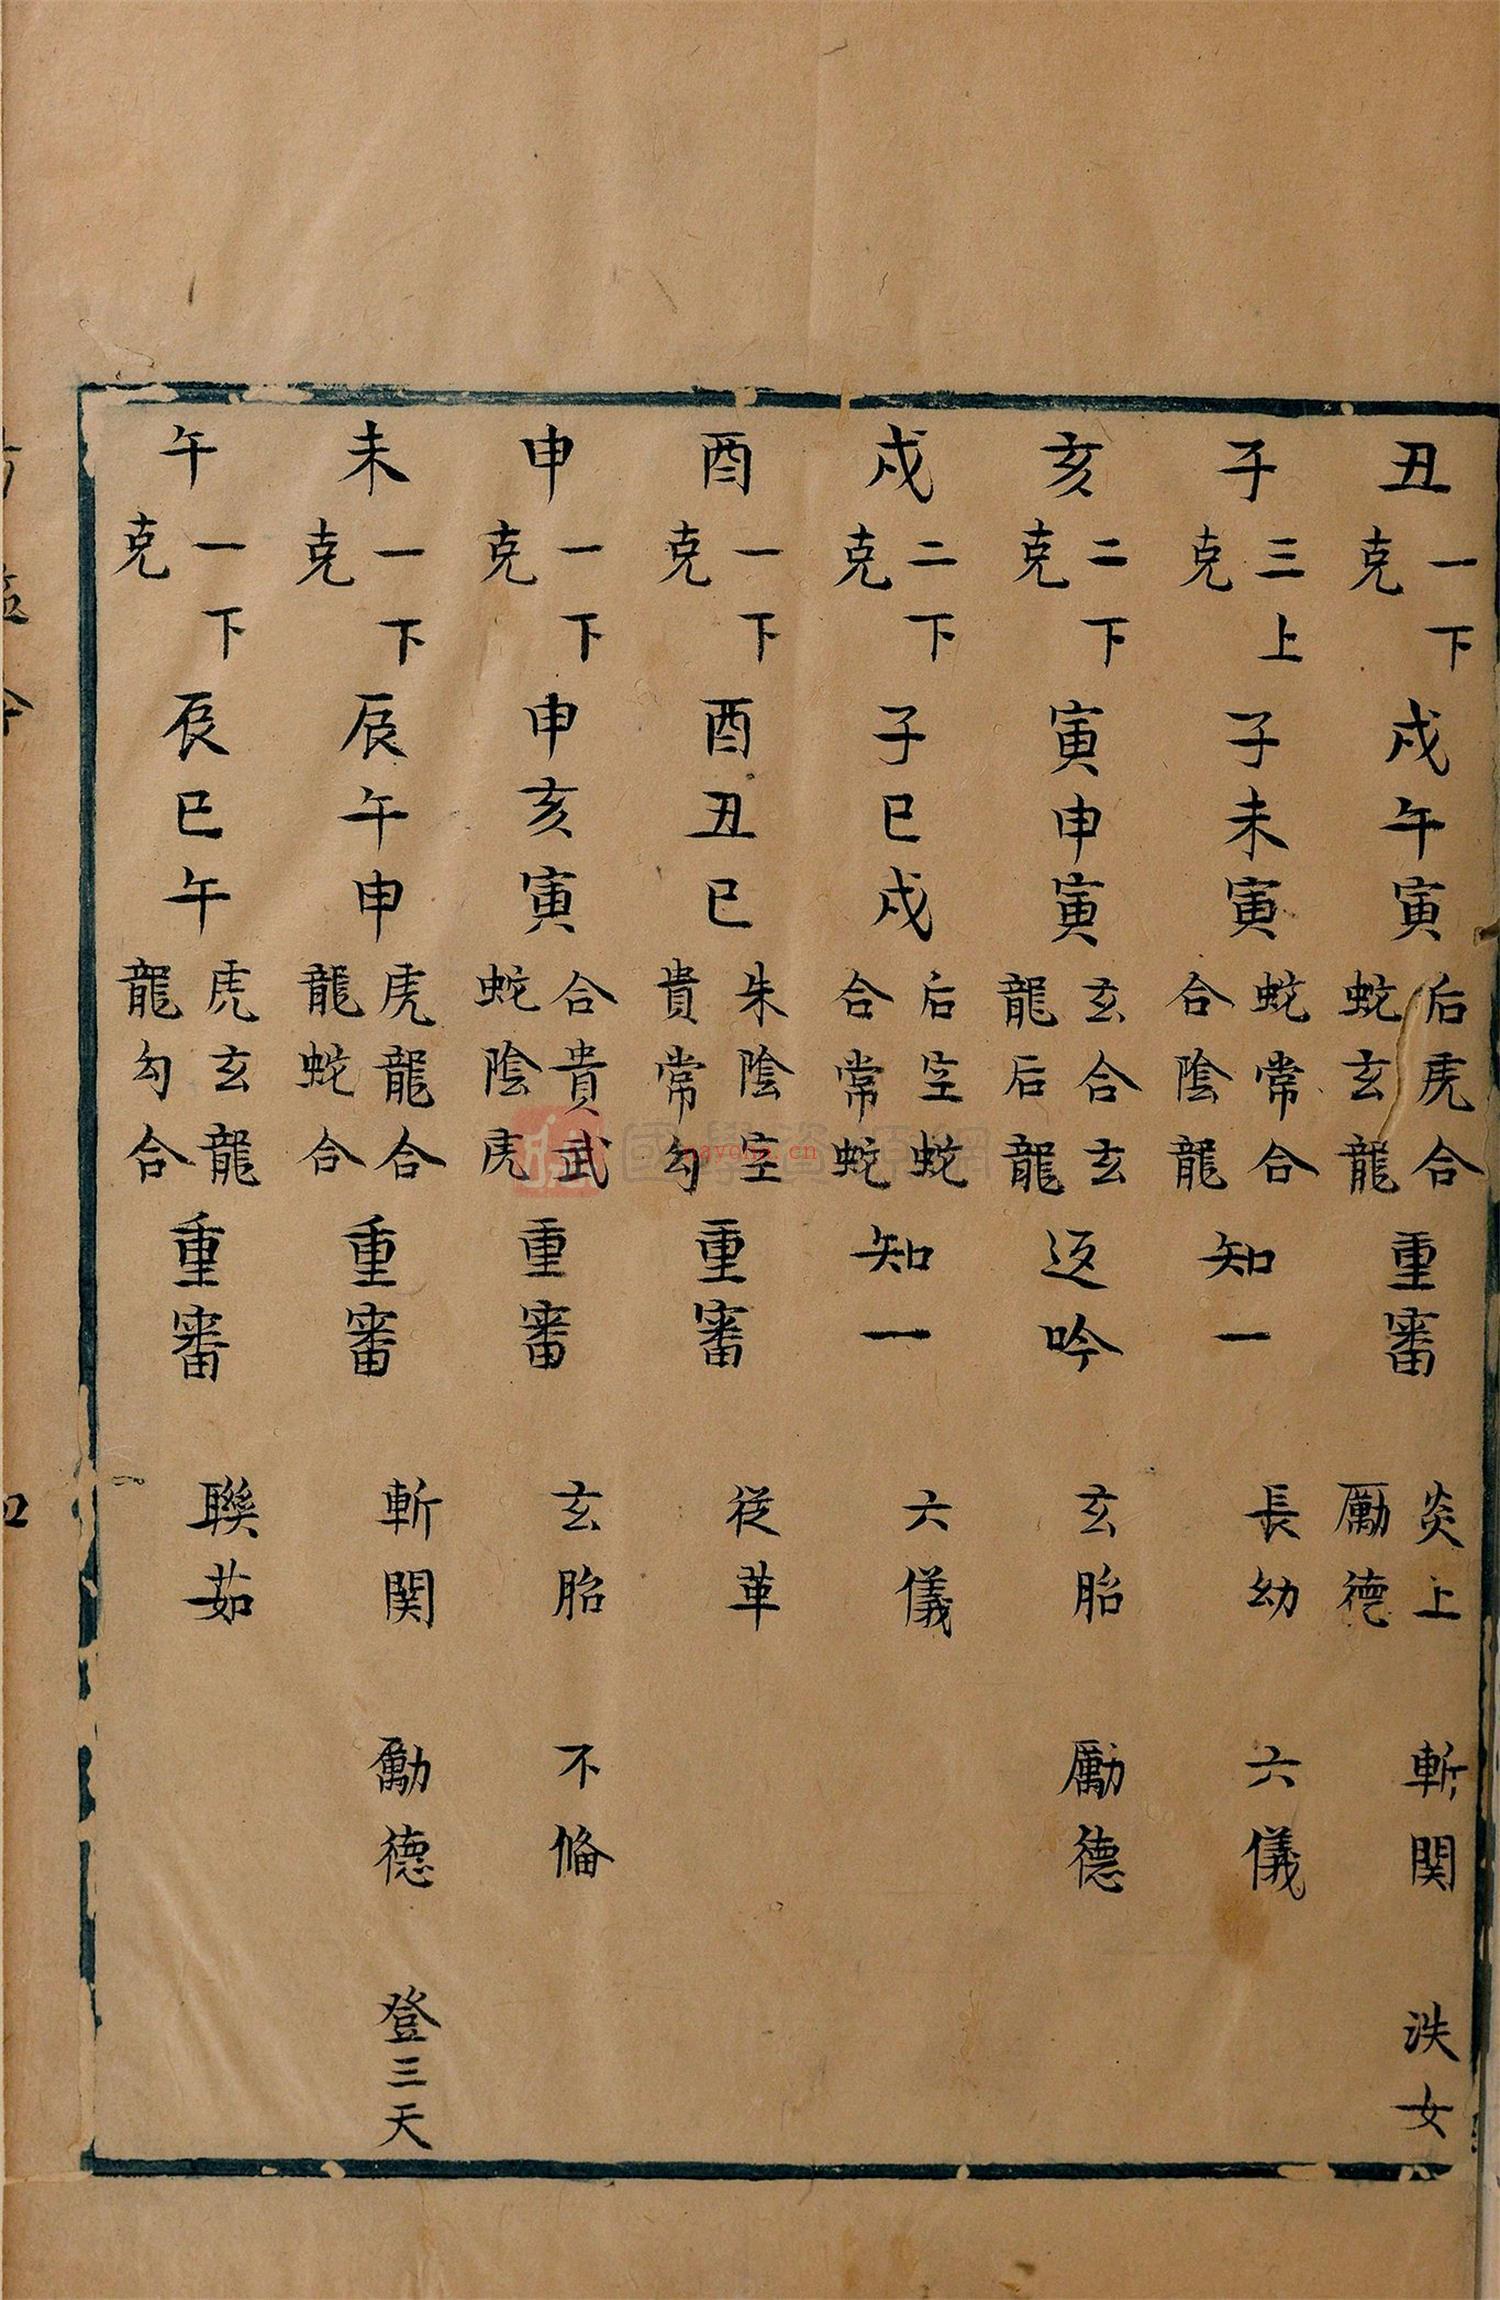 丑 一下克 戌午寅 后虎合 蛇玄龍 重審 炎上 厲德 斬関 泆女
子 三上克 子未寅 蛇常合 合陰龍 知一 長幼 六儀
亥 二下克 寅申寅 玄合玄 龍后龍 返吟 玄胎 厲德
戌 二下克 子巳戌 后空蛇 合常蛇 知一 六儀
酉 一下克 酉丑巳 朱陰空 貴常勾 重審 從革
申 一下克 申亥寅 合貴武 蛇陰虎 重審 玄胎 不俻
未 一下克 辰午申 虎龍合 龍蛇合 重審 斬関 勵德 登三天
午 一下克 辰巳午 虎玄龍 龍勾合 重審 聯茹